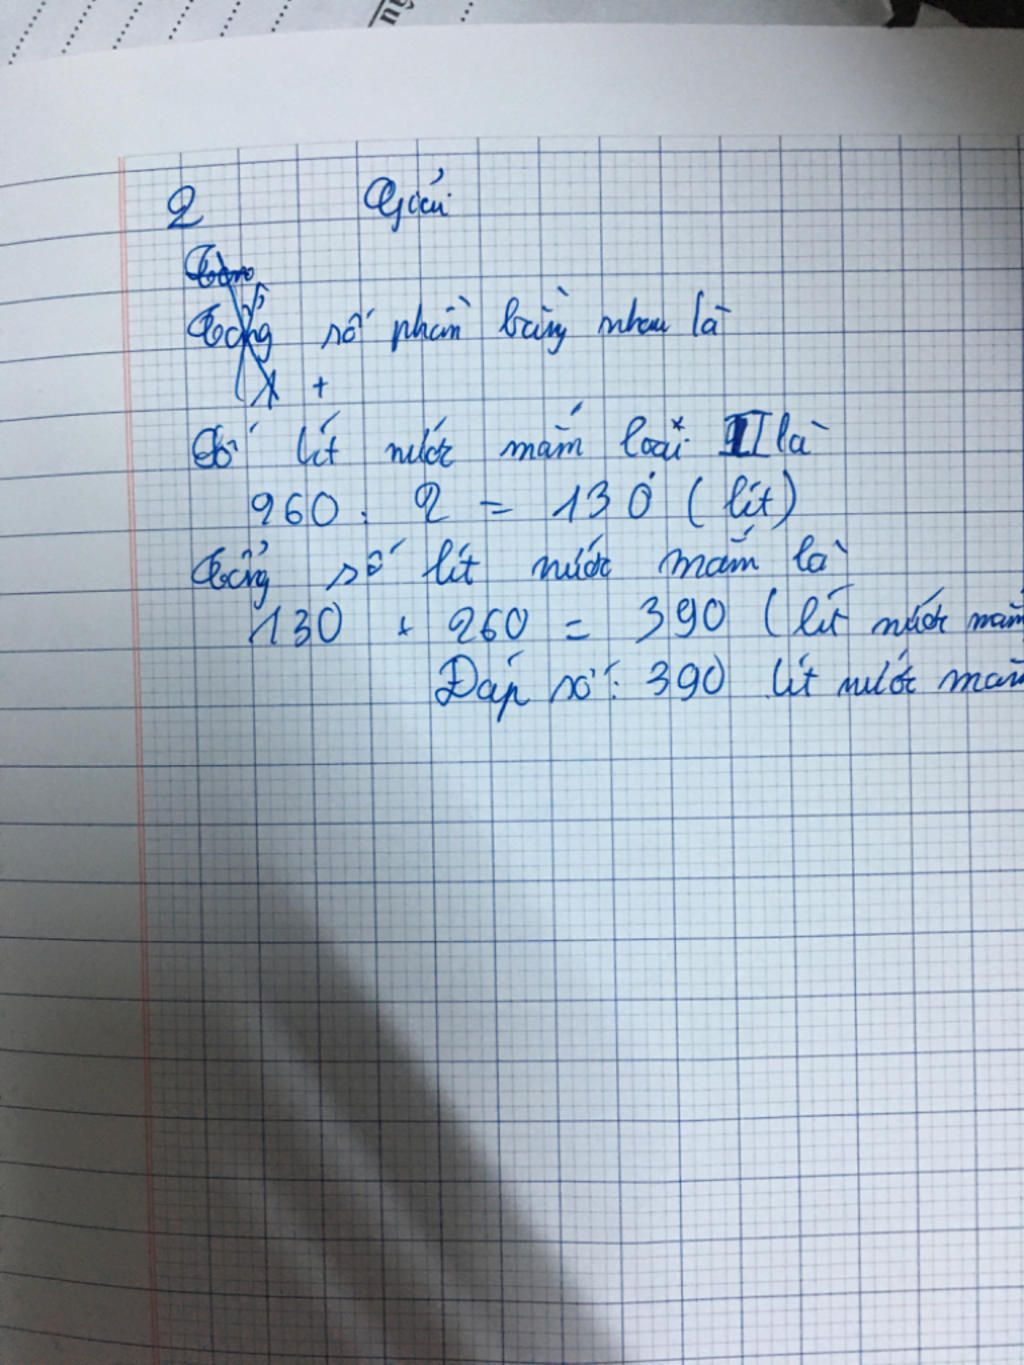 2 Giải
Tổng số phần bằng nhau là
1 +
Số lít nước mắm loại II là
260 : 2 = 130 (lít)
Tổng số lít nước mắm là
130 + 260 = 390 (lít nước mắm
Đáp số: 390 lít nước mắm